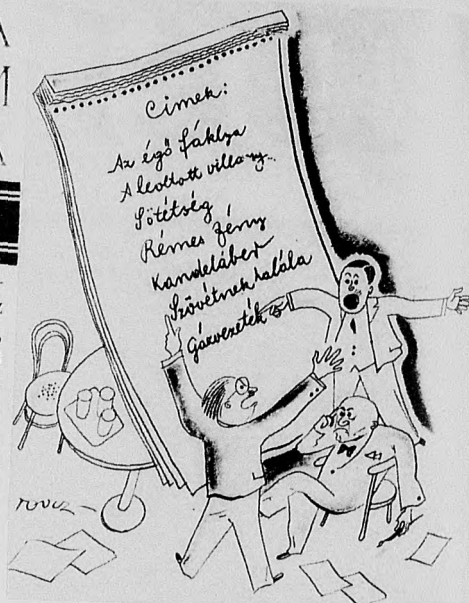 Cimek:
Az égő fáklya
A leoltott villany..
Sötétség
Rémes fény
Kandeláber
Szövétnek halála
Gázvezeték